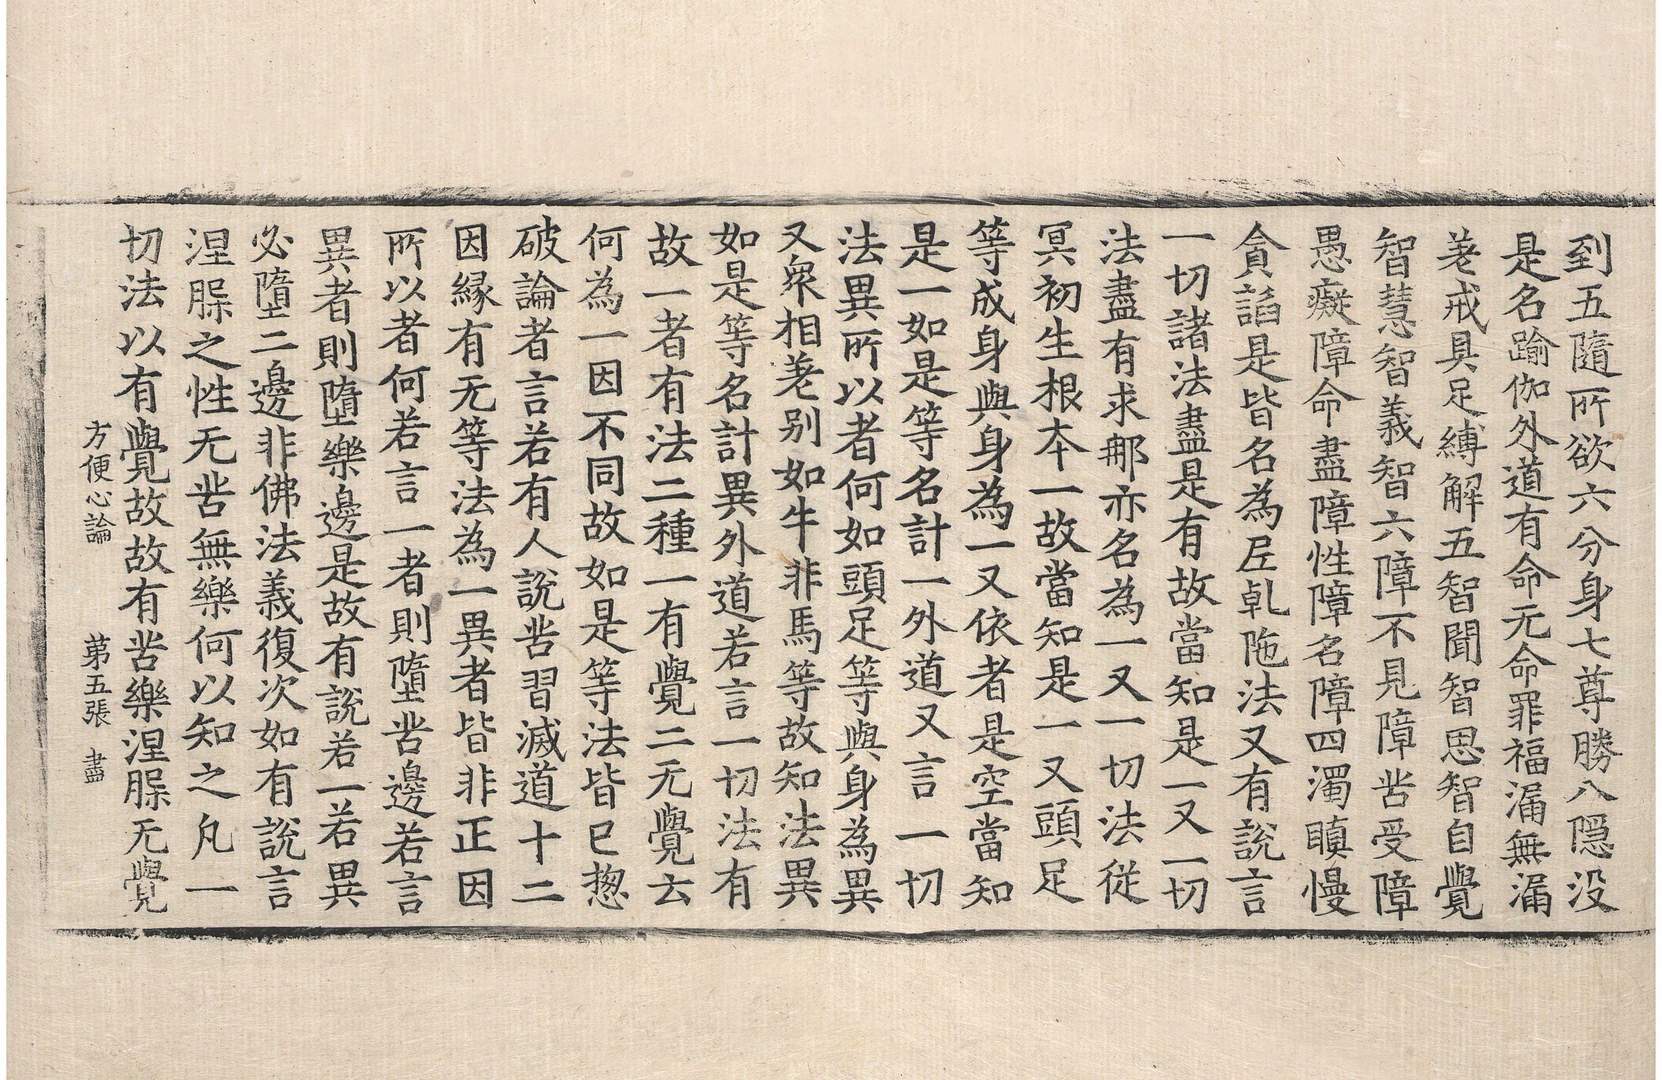 到五隨所欲六分身七尊勝八隱没
是名踰伽外道有命无命罪福漏無漏
差戒具足縛解五智聞智思智自覺
智慧智義智六障不見障苦受障
愚癡障命盡障性障名障四濁瞋慢
貪諂是皆名為尼乹陁法又有說言
一切諸法盡是有故當知是一又一切
法盡有求那亦名為一又一切法從
冥初生根本一故當知是一又頭足
等成身與身為一又依者是空當知
是一如是等名計一外道又言一切
法異所以者何如頭足等與身為異
又衆相差别如牛非馬等故知法異
如是等名計異外道若言一切法有
故一者有法二種一有覺二无覺云
何為一因不同故如是等法皆已揔
破論者言若有人說苦習滅道十二
因緣有无等法為一異者皆非正因
所以者何若言一者則墮苦邊若言
異者則墮樂邊是故有說若一若異
必墮二邊非佛法義復次如有說言
涅槃之性无苦無樂何以知之凡一
切法以有覺故故有苦樂涅槃无覺
方便心論　第五張　盡